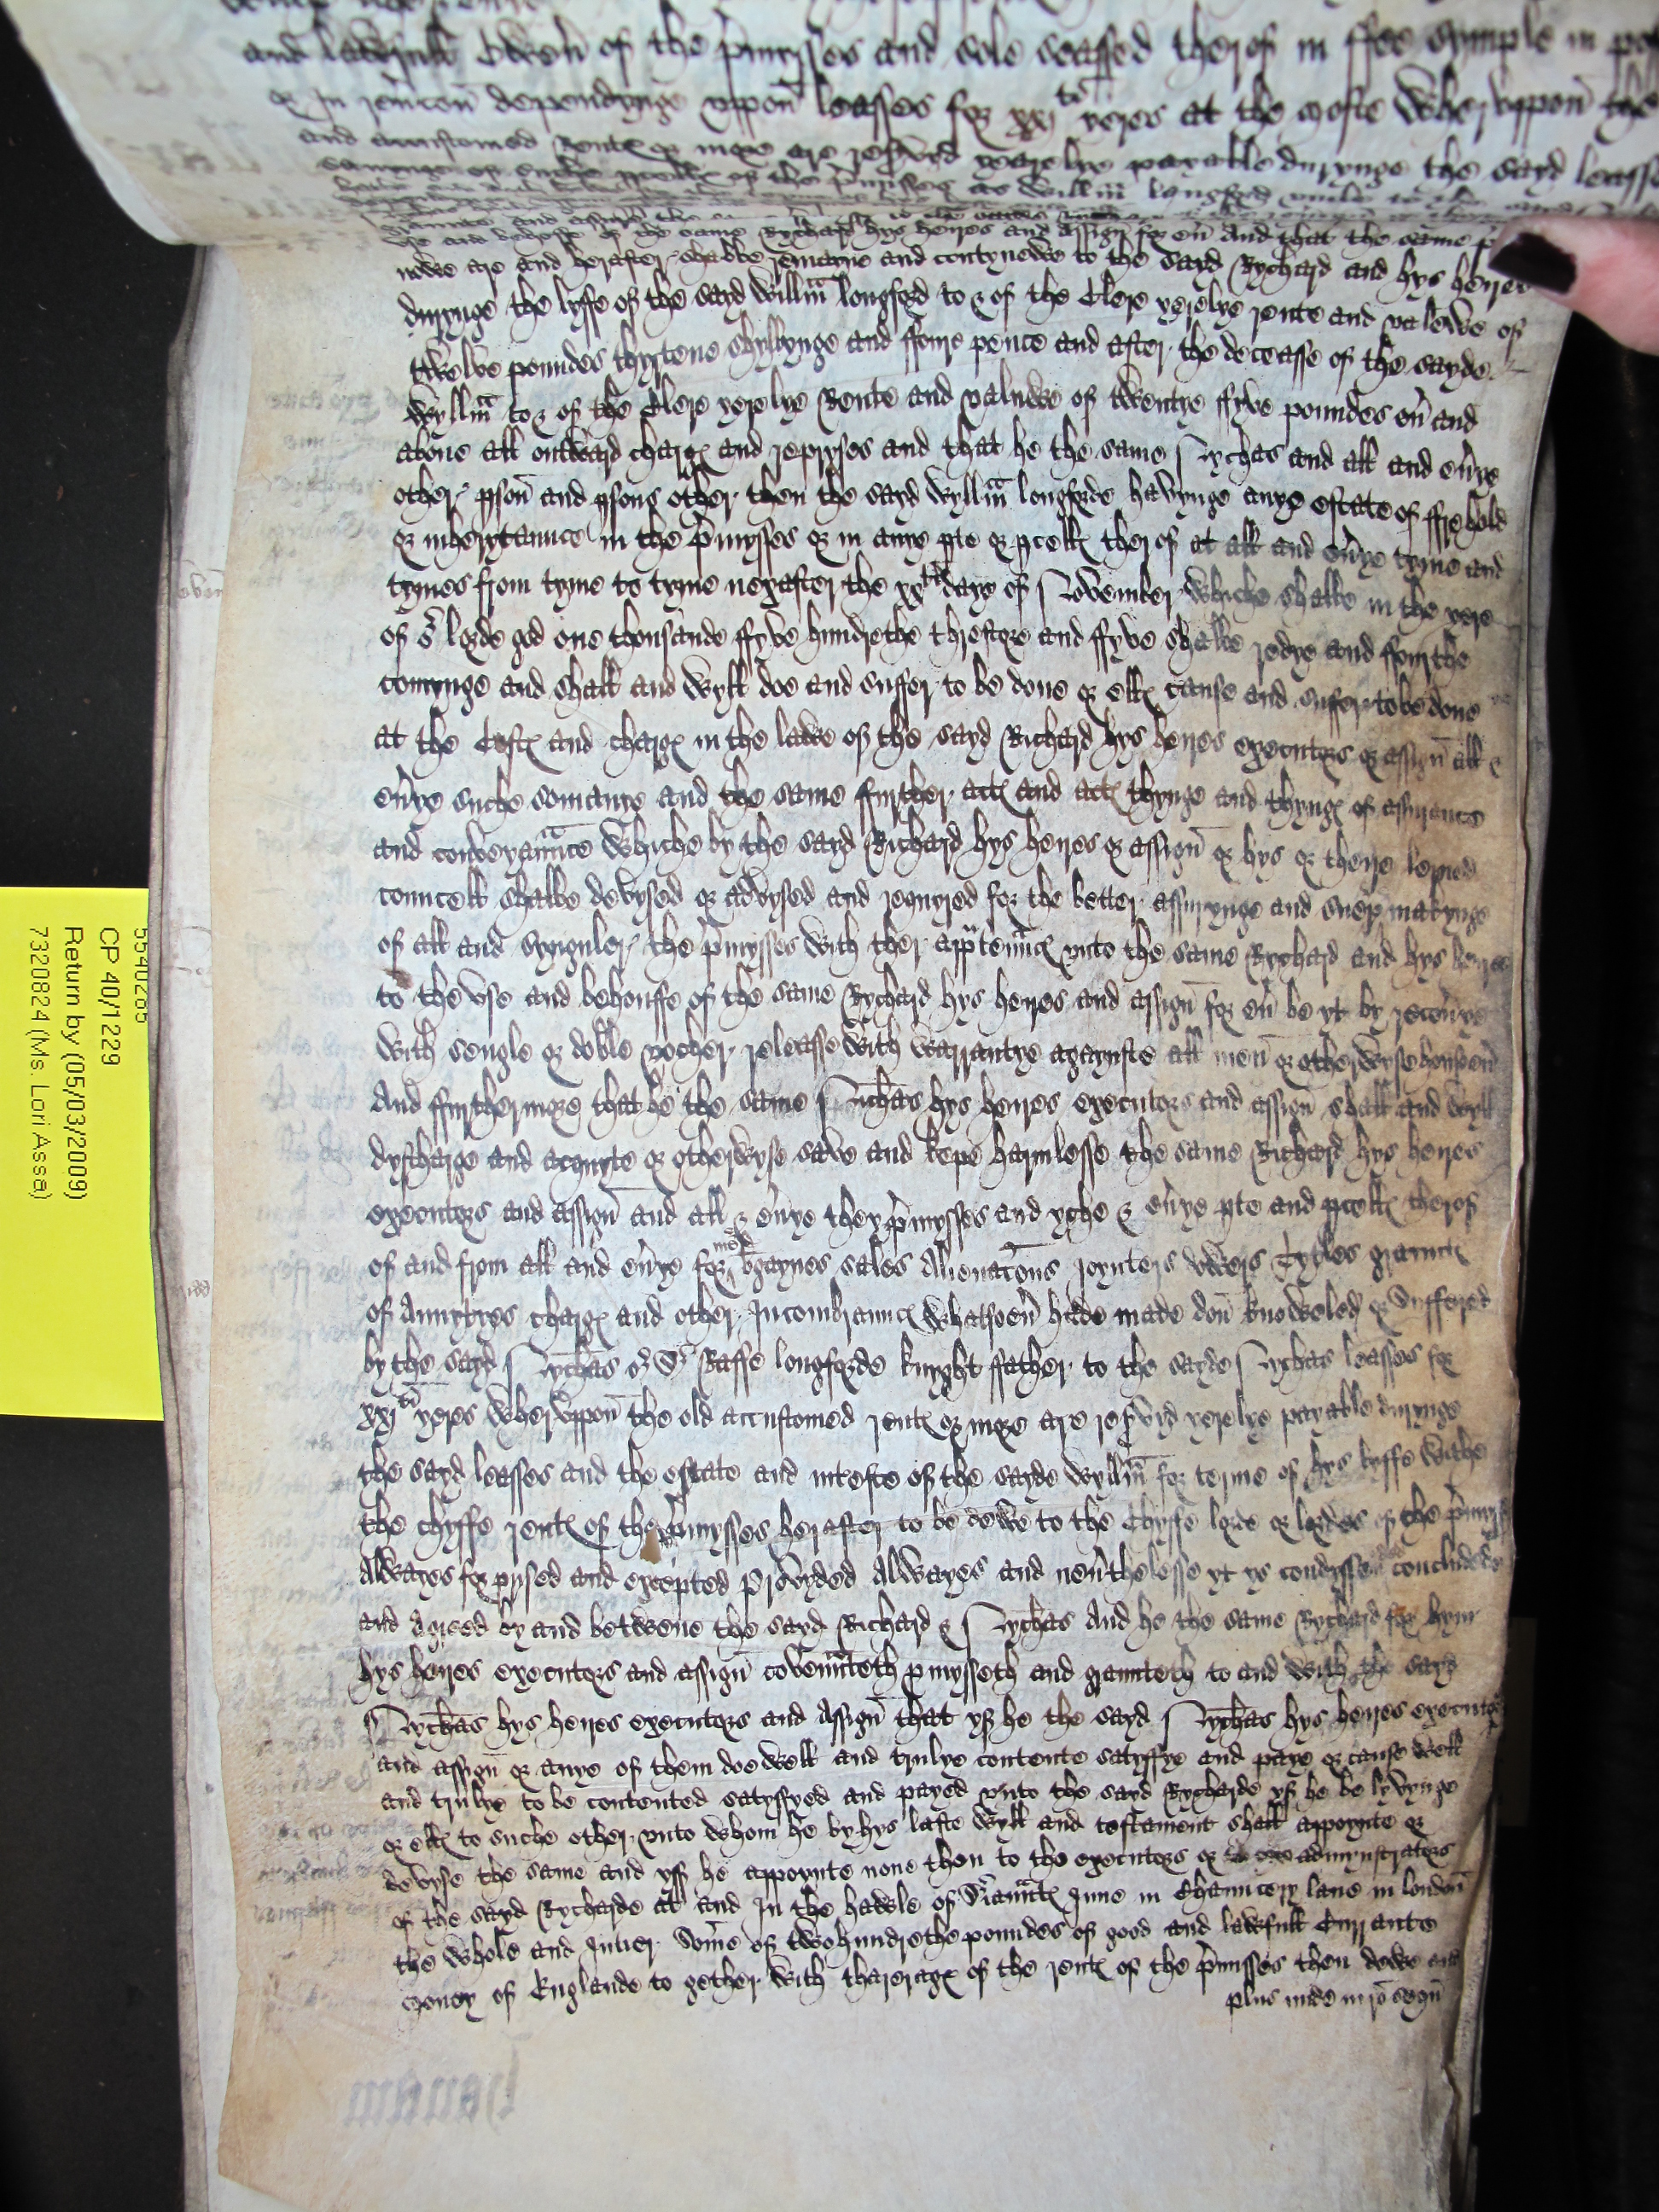 and lawfull owen of the p'mysses and sole seassed therof in ffee symple in
or In rem'con dependynge vppon leasses for xxj^ti yeres at the moste wher vppon the
and accustomed Rente or more are res'vyd yearelye payable durynge the sayd leasse
use and behoffe of the same Rychard hys heires and assign' for eu' And that the same
nowe are and herafter shalbe remayne and contynewe to the sayd Rychard and hys heires
durynge the lyffe of the sayd Willm longford to & of the Clere yerelye rente and valewe of
twelve poundes thyrtene shyllynge and ffoure pence and after the deceasse of the sayde
Wyllm to & of the Clere yerelye Rente and valuwe of twentye ffyve poundes ou' and
aboue all outward charg' and repryses and that he the same Nychas and all and eu'ye
other p'son and p'sons other then the sayd Wyllm longforde havynge anye estate of ffrehold
or inherytaunce in the p'mysses or in anye p'te or p'cell therof at all and eu'ye tyme and
tymes from tyme to tyme nexafter the xx^th daye of November whiche shalbe in the yere
of o' lorde god one thousande ffyve hundrethe threscore and ffyve shalbe redye and ffourthe
comynge and shall and wyll doe and suffer to be done or ell' cause and suffer to be done
at the Cost' and charg' in the lawe of the sayd Richard hys heires executors or assign' all &
eu'ye suche somanye and the same further act' and act' thynge and thyng' of assurance
and conveyaunce Whiche by the sayd Richard hys heires or assign' or hys or theire lerned
councell shalbe devysed or advysed and requyred for the better assurynge and suer makynge
of all and synguler the p'mysses with ther app'tenn'c' vnto the same Rychard and hys heires
to the vse and behouffe of the same Rychard hys heires and assign' for eu' be yt by recou'ye
with sengle or doble vocher releasse with warrantye agaynste all men or otherwyse howsoeu'
And ffurthermore that he the same Nichas hys heires executors and assign' shall and wyll
dyscharge and acquyte or otherwyse save and kepe harmlesse the same Richard hys heires
executors and assign' and all & eu'ye they p'mysses and yche & eu'ye p'te and p'cell therof
of and from all and eu'ye for mer bgaynes sales Alienacons Joynters dwers Tytles graunt'
of Annytyes charg' and other Incombraunc' whatsoeu' hade made don' knoweled' or suffered
by the sayd Nychas or S' Raffe longforde knyght ffather to the sayde Nychas leasses for
xxj^ti yeres Wher vppon the old accustomed rent' or more are res'vyd yerelye payable durynge
the sayd leasses and the estate and int'este of the sayde Wyllm for terme of hys lyffe withe
the chyffe rent' of the p'mysses herafter to be dewe to the Chyffe lorde or lordes of the p'myss'
Alwayes for prised and excepted Provyded Alwayes and neu'thelesse yt ys condyss' concludede
and Agreed by and betwene the sayd Richard & Nychas And he the same Rychard for hym
hys heires executors and assign' coven'nteth p'mysseth and graunteth to and with the sayd
Nychas hys heires executors and Assign' that yf he the sayd Nychas hys heires executors
and assign' or anye of them doe well and trulye contente satysfye and paye or cause well
and trulye to be contented satysfyed and payed vnto the sayd Rycharde yf he be lyvynge
or ell' to suche other vnto whom he by hys laste wyll and testament shall appoynte or
devyse the same and yff he appoynte none then to the executors or admynistrators
of the sayd Rycharde at and In the hawle of S'iaunt' Inne in Chauncery lane in london
the whole and Intier Some of two hundrethe poundes of good and lawfull Currante
money of Englande to gether with tharerag' of the rent' of the p'misses then dewe and
plus inde in ro' sequ'
5540285
CP 40/1229
Return by (05/03/2009)
7320824 (Ms. Lori Asse)